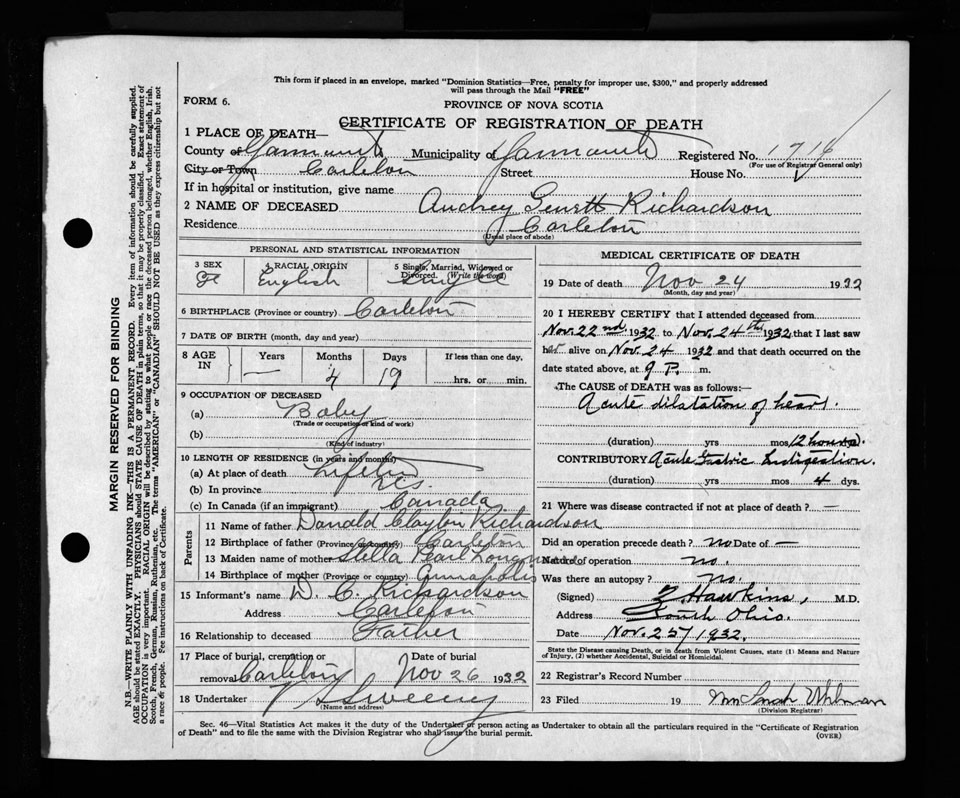 This form if placed in an envelope, marked "Dominion Statistics—Free, penalty for improper use, $300," and properly addressed
will pass through the Mail "FREE"
FORM 6.
PROVINCE OF NOVA SCOTIA
CERTIFICATE OF REGISTRATION OF DEATH
1 PLACE OF DEATH—
County of Yarmouth Municipality of Yarmouth Registered No. 1716
(For use of Registrar General only)
City or Town Carleton Street House No.
If in hospital or institution, give name
2 NAME OF DECEASED Audrey Richardson
Residence Carleton
(Usual place of abode)
PERSONAL AND STATISTICAL INFORMATION
3 SEX 4 RACIAL ORIGIN 5 Single, Married, Widowed or
Divorced. (Write the word)
F English Single
6 BIRTHPLACE (Province or country) Carleton
7 DATE OF BIRTH (month, day and year)
8 AGE IN Years Months Days If less than one day,
— 4 19 hrs. or min.
9 OCCUPATION OF DECEASED
(a) Baby
(Trade or occupation or kind of work)
(b)
(Kind of industry)
10 LENGTH OF RESIDENCE (in years and months)
(a) At place of death Lifetime
(b) In province N.S.
(c) In Canada (if an immigrant) Canada
Parents
11 Name of father Donald Clayton Richardson
12 Birthplace of father (Province or country) Carleton
13 Maiden name of mother Stella Pearl
14 Birthplace of mother (Province or country) Annapolis
15 Informant's name D. C. Richardson
Address Carleton
16 Relationship to deceased Father
17 Place of burial, cremation or removal Carleton
Date of burial Nov 26 1932
18 Undertaker V S Sweeny
(Name and address)
MEDICAL CERTIFICATE OF DEATH
19 Date of death Nov 24 1932
(Month, day and year)
20 I HEREBY CERTIFY that I attended deceased from
Nov. 22nd 1932 to Nov. 24th 1932 that I last saw
her alive on Nov. 24 1932 and that death occurred on the
date stated above, at 9 P. m.
The CAUSE OF DEATH was as follows:—
Acute dilatation of heart.
(duration) yrs mos 12 hours.
CONTRIBUTORY Acute Gastric Indigestion.
(duration) yrs mos 4 dys.
21 Where was disease contracted if not at place of death? —
Did an operation precede death? no Date of —
Nature of operation no.
Was there an autopsy? No.
(Signed) Z Hawkins, M.D.
Address South Ohio.
Date Nov. 25/1932.
State the Disease causing Death, or in death from Violent Causes, state (1) Means and Nature
of Injury, (2) whether Accidental, Suicidal or Homicidal.
22 Registrar's Record Number
23 Filed 19
(Division Registrar)
Sec. 46—Vital Statistics Act makes it the duty of the Undertaker or person acting as Undertaker to obtain all the particulars required in the "Certificate of Registration
of Death" and to file the same with the Division Registrar who shall issue the burial permit.
(OVER)
MARGIN RESERVED FOR BINDING
N.B.—WRITE PLAINLY WITH UNFADING INK—THIS IS A PERMANENT RECORD. Every item of information should be carefully supplied.
AGE should be stated EXACTLY. PHYSICIANS should STATE CAUSE OF DEATH in plain terms, so that it may be properly classified. Exact statement of
OCCUPATION is very important. RACIAL ORIGIN will be described by stating to what people or race the deceased person belonged, whether English, Irish,
Scotch, French, German, Russian, Ruthenian, etc. The terms "AMERICAN" or "CANADIAN" SHOULD NOT BE USED as they express citizenship but not
a race & people. See instructions on back of Certificate.